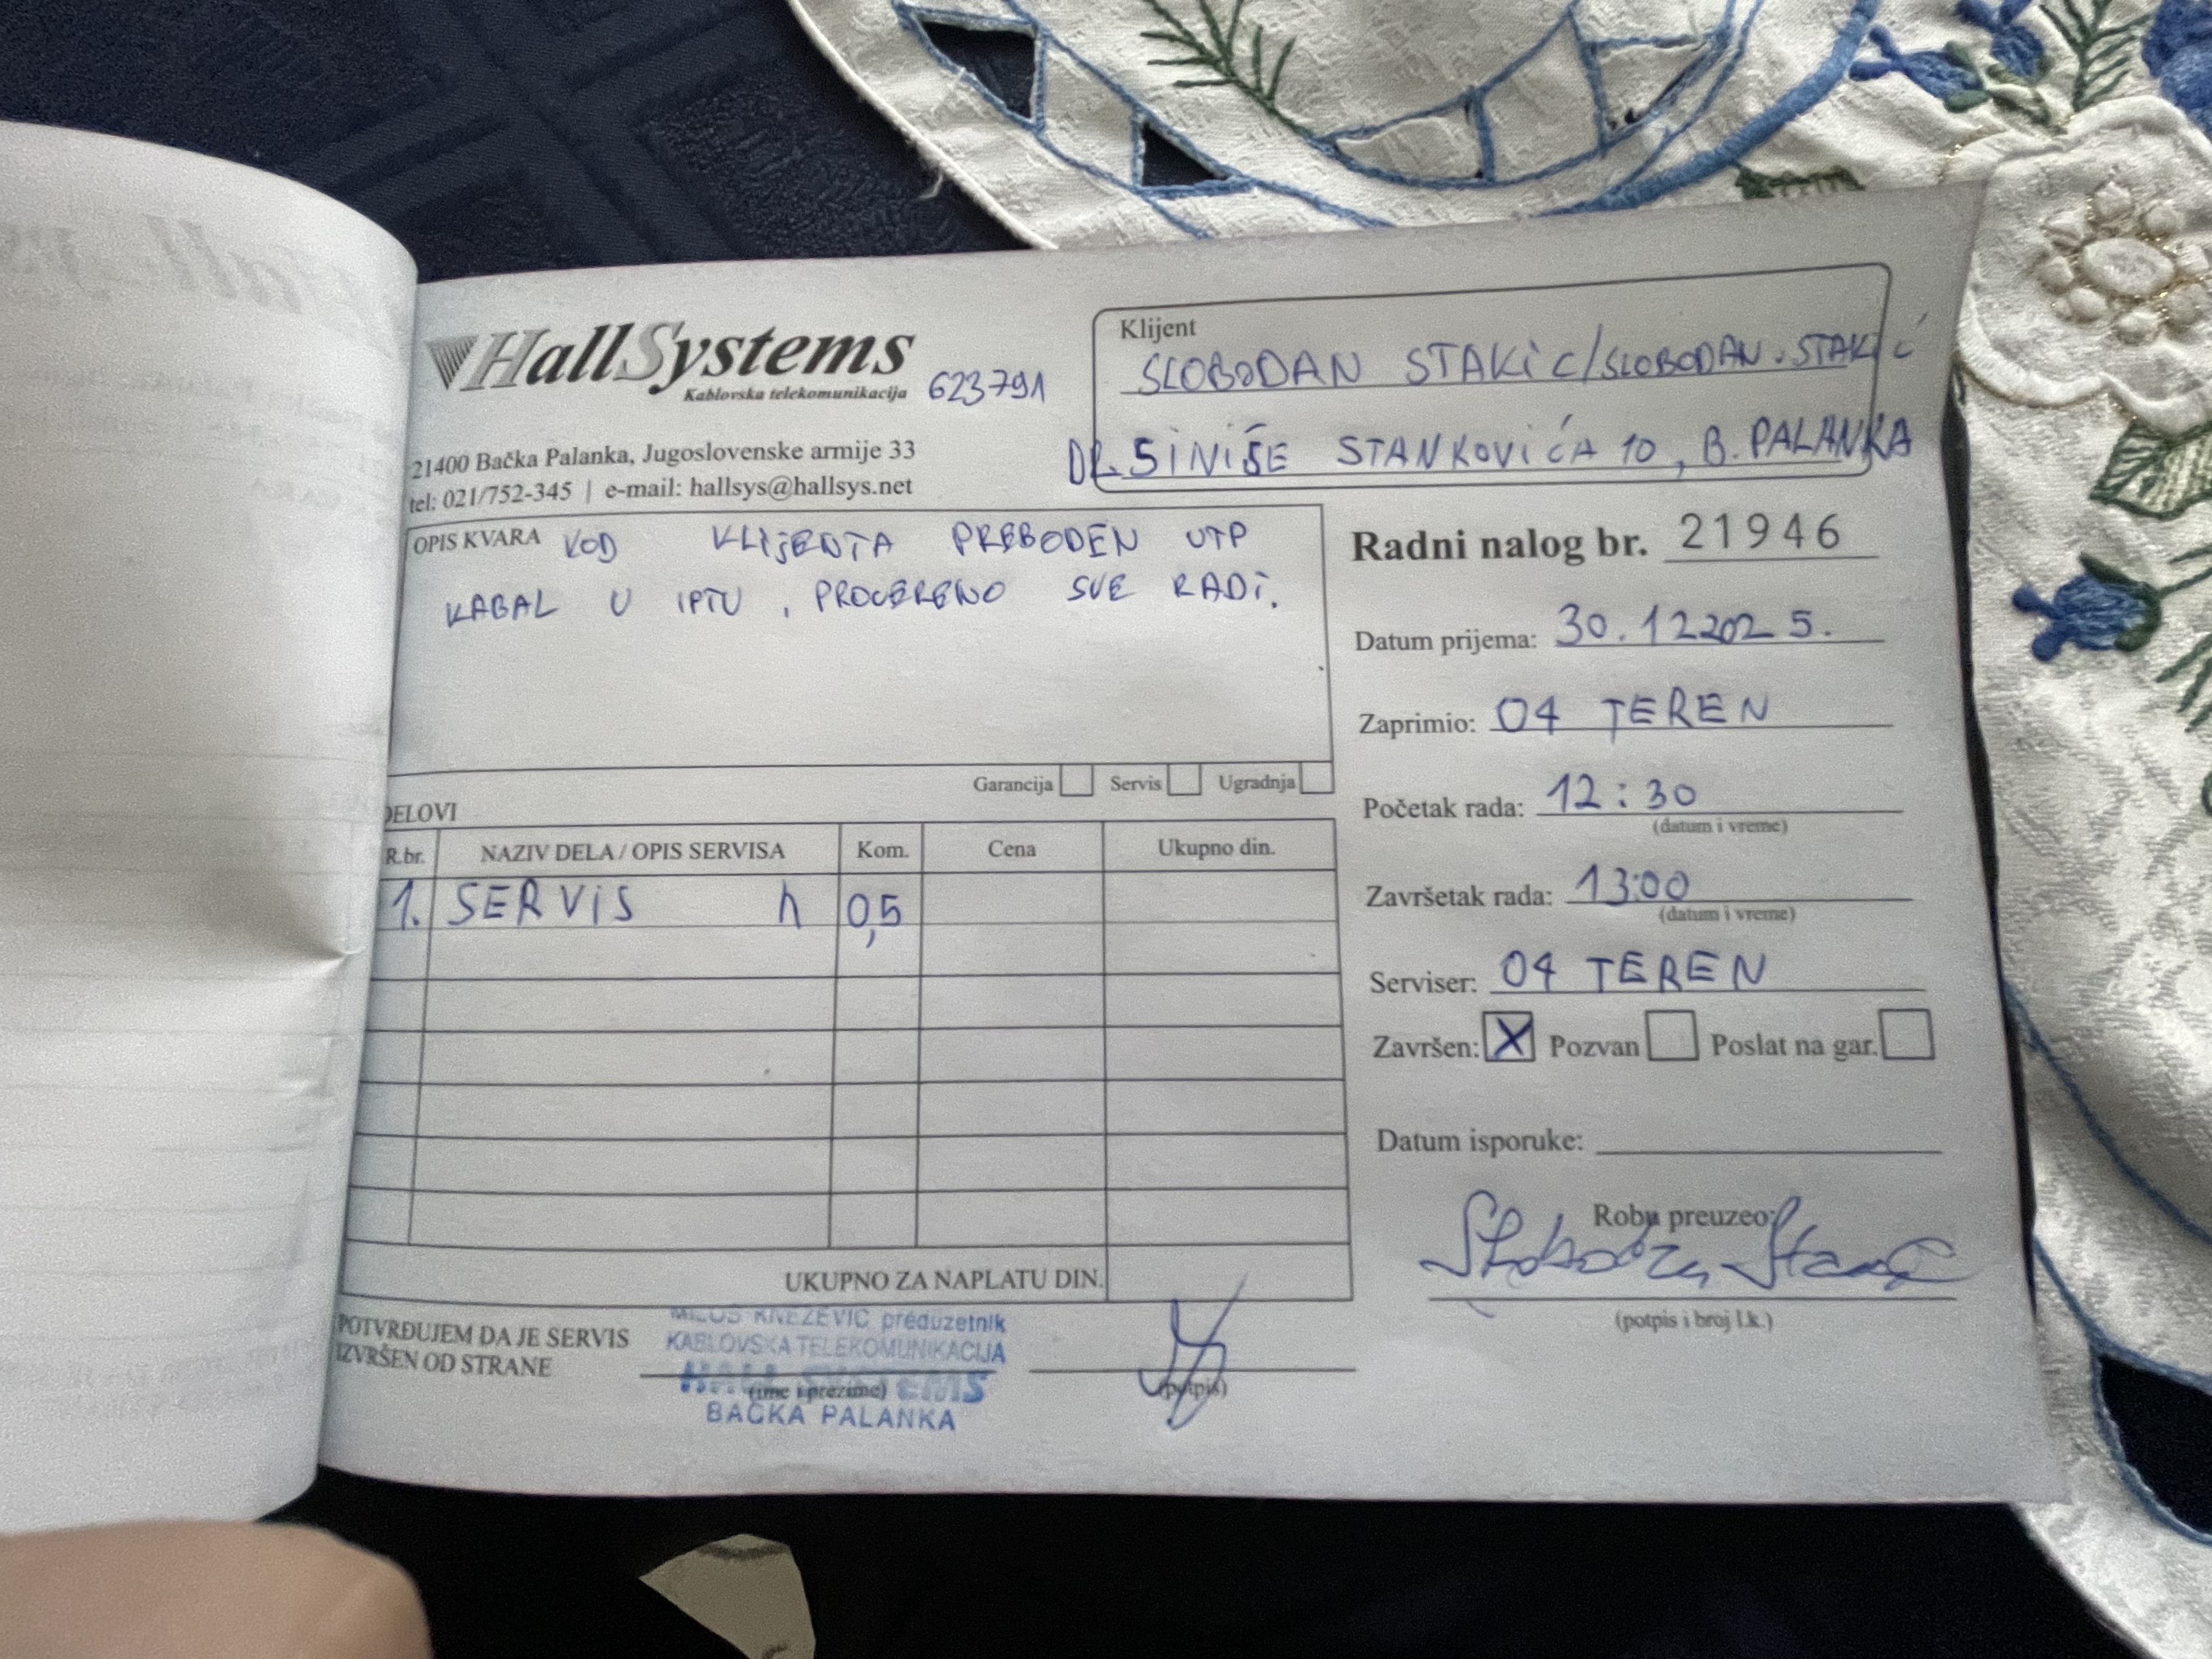 HallSystems
Kablovska telekomunikacija
623791
21400 Bačka Palanka, Jugoslovenske armije 33
tel: 021/752-345 | e-mail: hallsys@hallsys.net
Klijent
SLOBODAN STAKIC/SLOBODAN.STAKIĆ
DR. SINIŠE STANKOVIĆA 10, B. PALANKA
OPIS KVARA KOD KLIJENTA PREBODEN UTP
KABAL U IPTU, PROVERENO SVE RADI.
Garancija Servis Ugradnja
Radni nalog br. 21946
Datum prijema: 30.12 2025.
Zaprimio: 04 TEREN
Početak rada: 12:30
(datum i vreme)
Završetak rada: 13:00
(datum i vreme)
Serviser: 04 TEREN
Završen: X Pozvan Poslat na gar.
Datum isporuke:
Robu preuzeo:
(potpis i broj l.k.)
DELOVI
R.br. NAZIV DELA / OPIS SERVISA Kom. Cena Ukupno din.
1. SERVIS h 0,5
UKUPNO ZA NAPLATU DIN.
POTVRĐUJEM DA JE SERVIS
IZVRŠEN OD STRANE
MILOŠ KNEŽEVIĆ preduzetnik
KABLOVSKA TELEKOMUNIKACIJA
HALL SYSTEMS
(ime i prezime)
BAČKA PALANKA
(potpis)